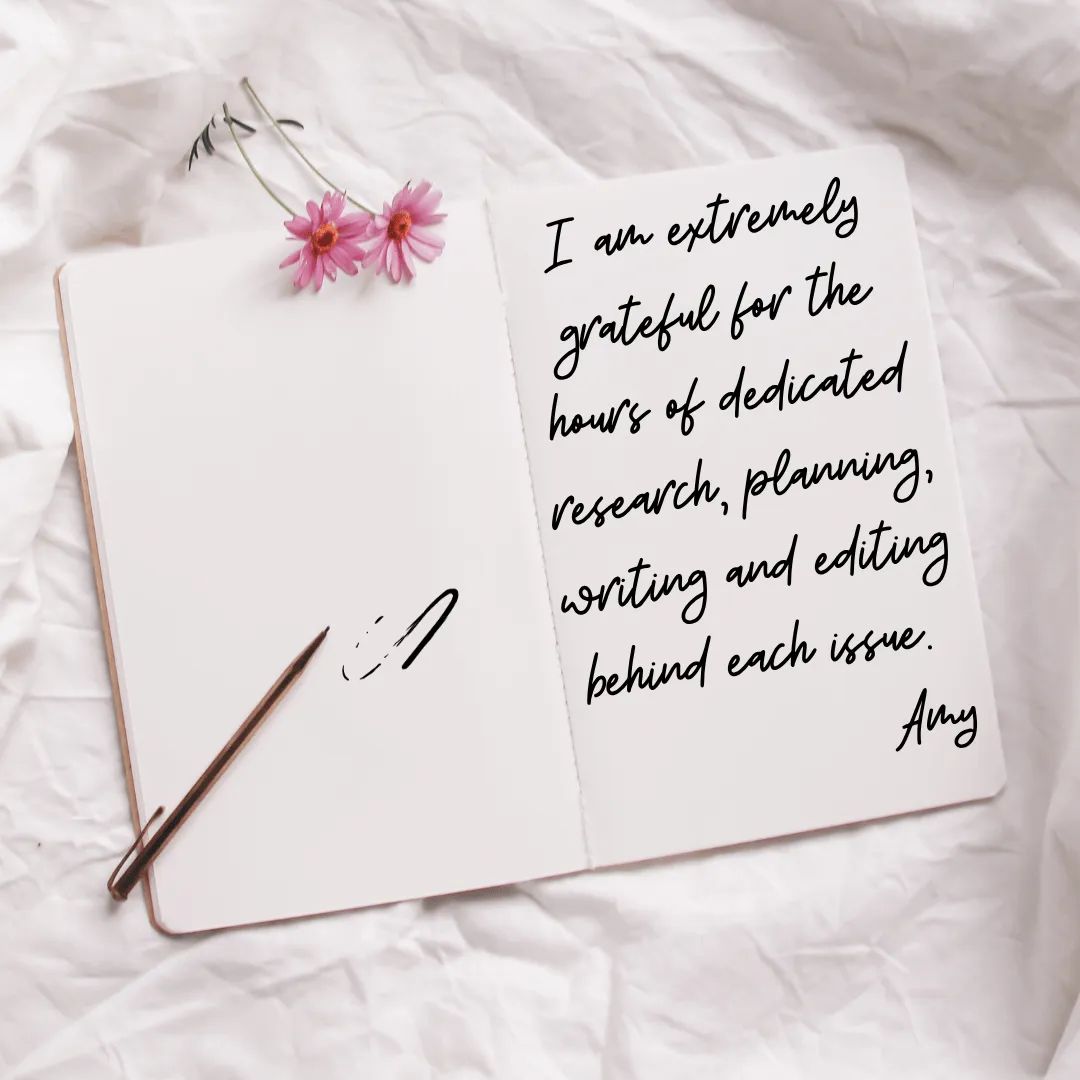 I am extremely
grateful for the
hours of dedicated
research, planning,
writing and editing
behind each issue.
Amy